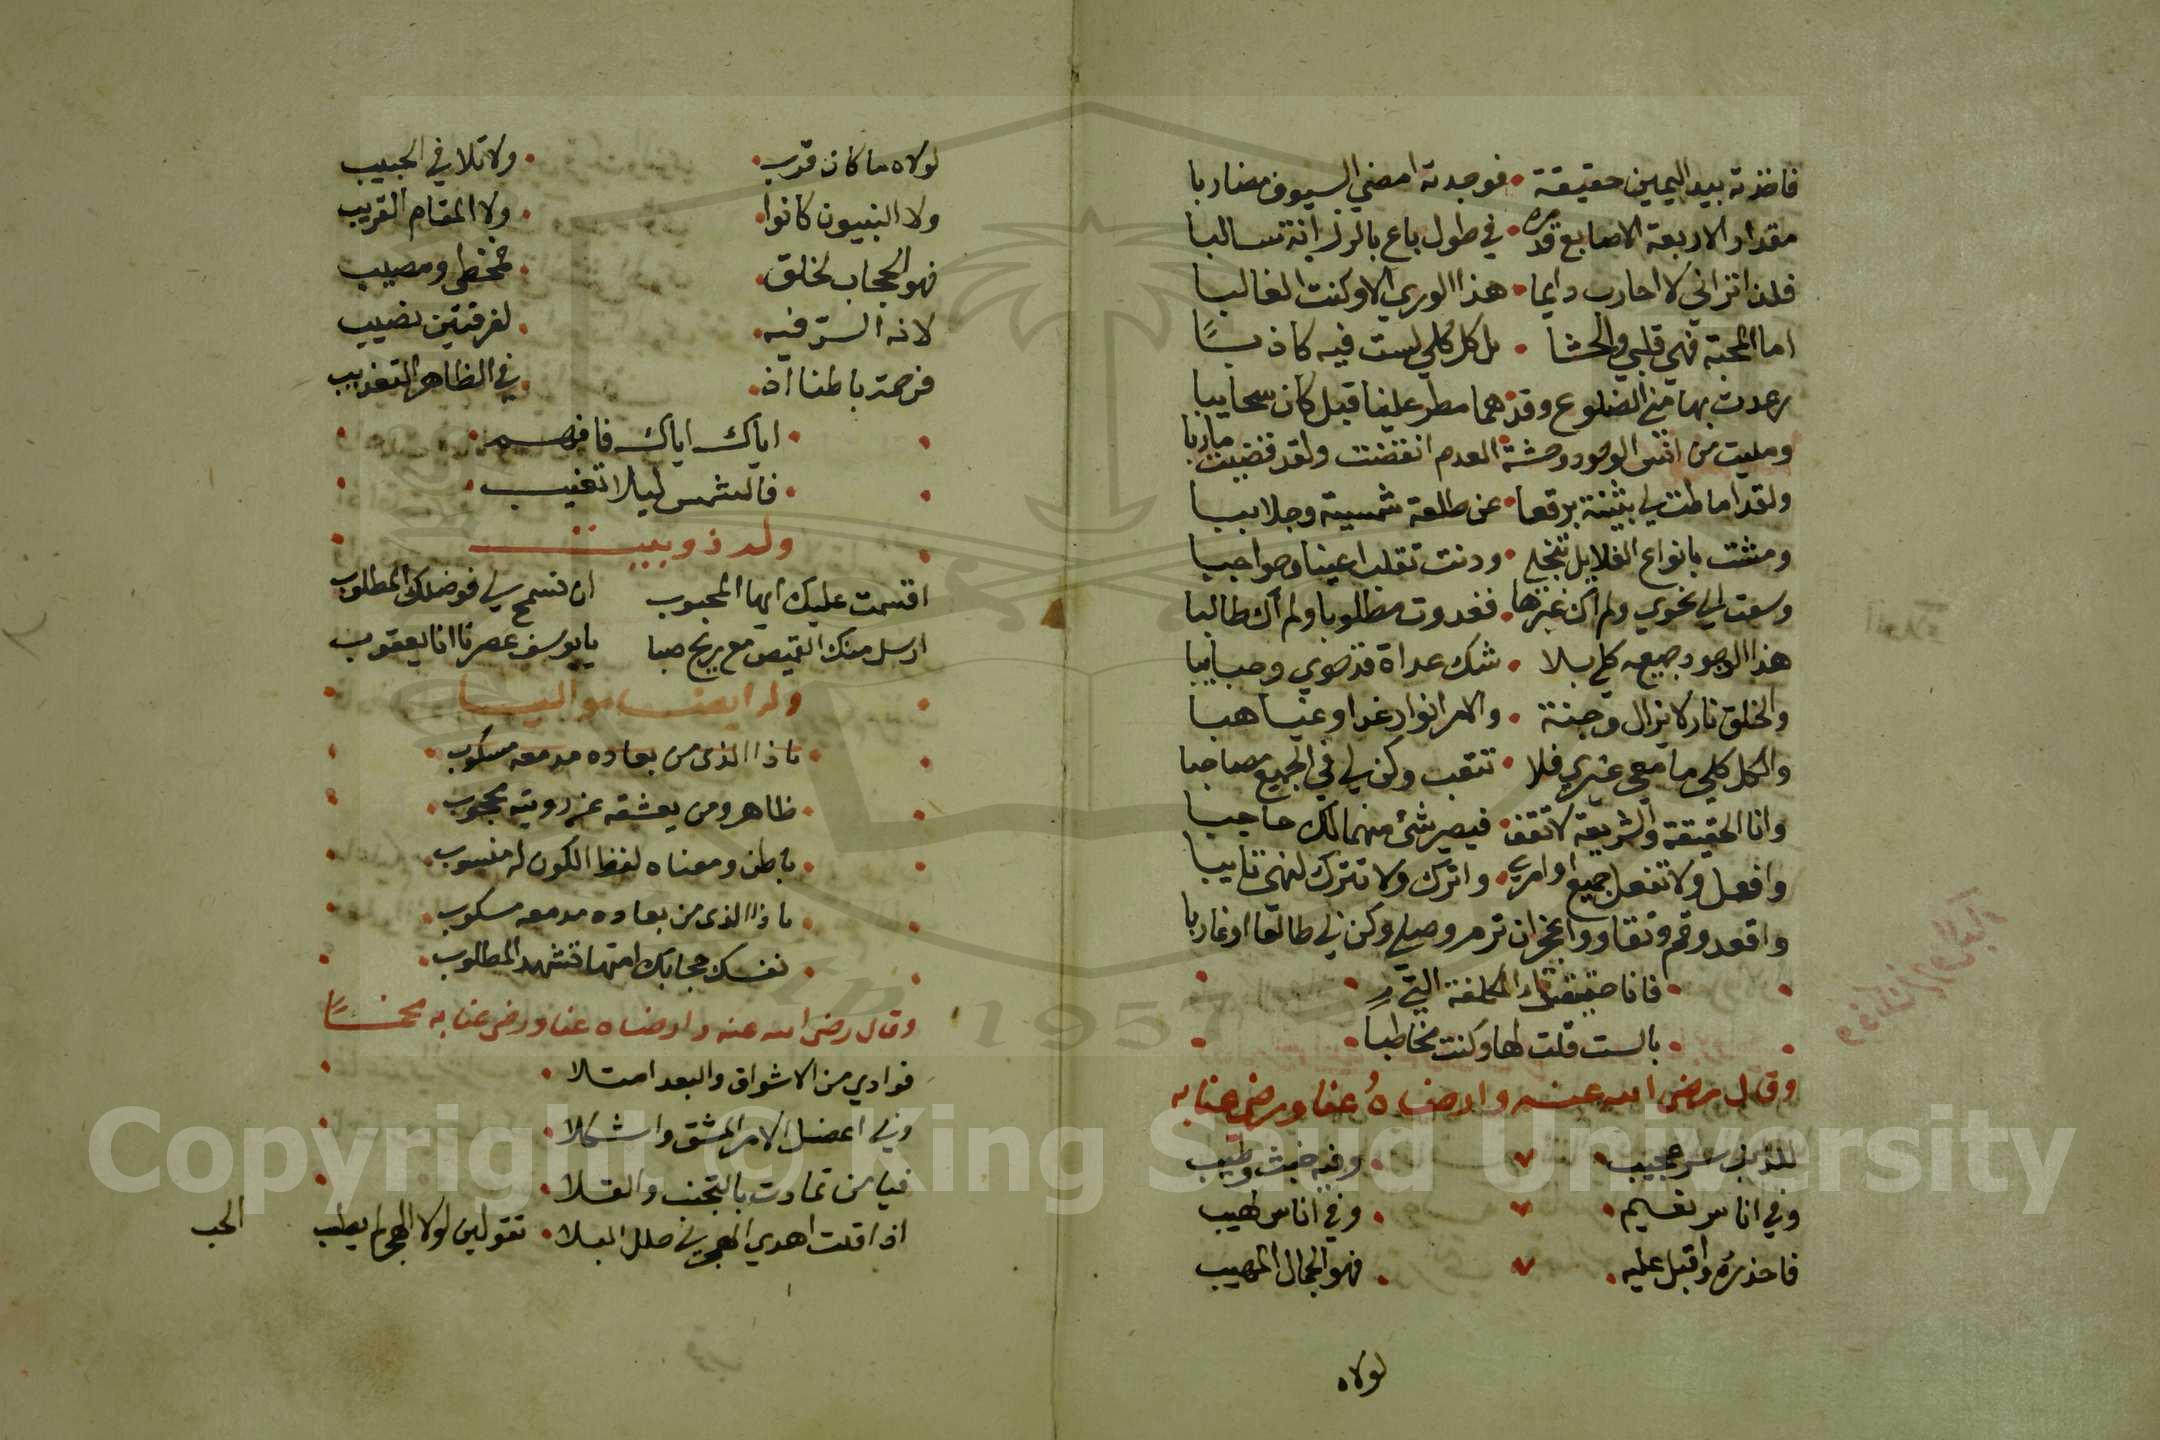 فاخذته بيد اليمين حقيقة • فوجدته امضي السيوف مضاربا
مقدار الاربعة الاصابع قدره • في طول باع بالرزانة سالبا
فلذا تراني لا احارب دايما • هذا الوري الا وكنت الغالبا
اما المحبة فهي قلبي والحشا • بل كل كلي لست فيه كاذبًا
رعدت بها مني الضلوع وقد هما مطر علينا قبل كان سحايبا
ومليت من انسى الوجود وحشة العدم انقضت ولقد قضيت ماربا
ولقد اماطت لي بثينة برقعا • عن طلعة شمسية وجلاببا
ومشت بانواع الغلايل تنجلي • ودنت تقلب اعينا وحواجبا
وسعت الي نحوي ولم اكن غيرها • فغدوت مطلوبا ولم اك طالبا
هذا الوجود جميعه كلي بلا • شك عداة قد حوي وحبايبا
والخلق نار لا يزال وجنة • والامر انوار غدا وغياهبا
والكل كلي ما معي غيري فلا • تتعب وكن لي في الجميع مصاحبا
وانا الحقيقة والشريعة لا تقف • فيصير شئ منهما لك حاجبا
وافعل ولا تفعل جميع اوامري • واترك ولا تترك لنهي تايبا
واقعد وقم وتقاو واعجز ان ترم وصلي وكن لي طالعا او غاربا
• فانا حقيقتك المكلفة التي •
• بالست قلت لها وكنت مخاطبا •
وقال رضي الله عنه وارضاه عنا ورضي عنا به
للذنب سر عجيب • وفيه خبث وطيب
وفي اناس نعيم • وفي اناس لهيب
فاحذره واقبل عليه • فهو الجمال المهيب
لولاه
لولاه ما كان قرب • ولا تلافي الحبيب
ولا النبيون كانوا • ولا المقام القريب
فهو الحجاب لخلق • فمخطي ومصيب
لانه السر فيه • لفرقتين نصيب
فرحمة باطنا اذ • في الظاهر التعذيب
• اياك اياك فافهم •
• فالشمس ليلا تغيب •
وله ذو بيت
اقسمت عليك ايها المحبوب ان تسمح لي فوضلك المطلوب
ارسل منك القميص مع ريح صبا يا يوسف عصرنا انا يعقوب
وله ايضا مواليا
• ماذا الذي من بعاده مدمعه مسكوب •
• ظاهر ومن يعشقه عن رويته محجوب •
• باطن ومعناه لفظ الكون له منسوب •
• ماذا الذي من بعاده مدمعه مسكوب •
• نفسك حجابك امتها تشهد المطلوب •
وقال رضي الله عنه وارضاه عنا ورضي عنا به مخمسًا
فوادي من الاشواق والبعد امتلا •
وبي اعضل الامر المشق واشكلا •
فيا من تمادت بالتجنب والقلا •
اذا قلت اهدي الهجر لي حلل البلا • تقولين لولا الهجر لم يطب
الحب
Copyright © King Saud University
1957